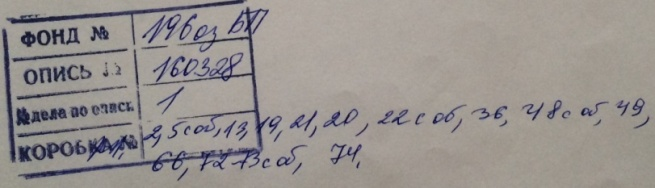 ФОНД № 196оз БП
ОПИСЬ № 160328
№ дела по описи 1
КОРОБКА № 2, 5 соб, 13, 19, 21, 20, 22 соб, 36, 48 соб, 49,
66, 72-73 соб, 74.